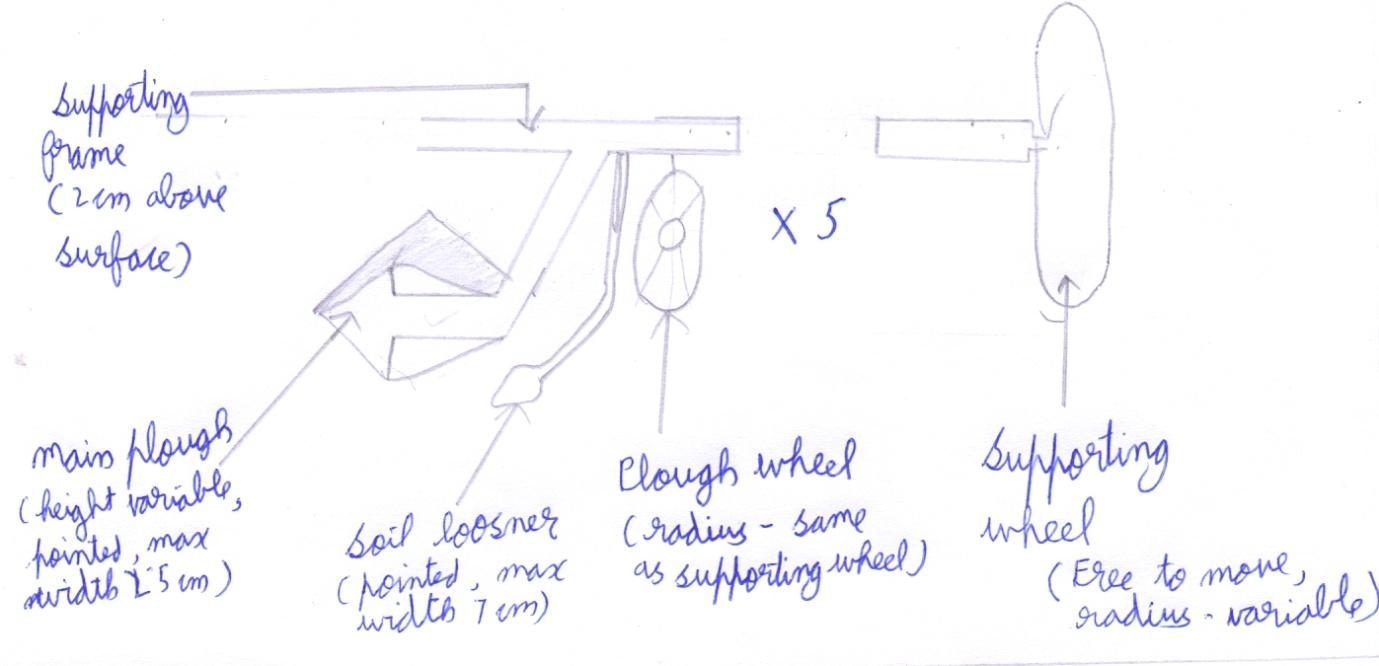 supporting
frame
(2 cm above
surface)
X 5
main plough
(height variable,
pointed, max
width cm)
soil loosner
(pointed, max
width 7 cm)
Plough wheel
(radius - same
as supporting wheel)
supporting
wheel
(Free to move,
radius - variable)